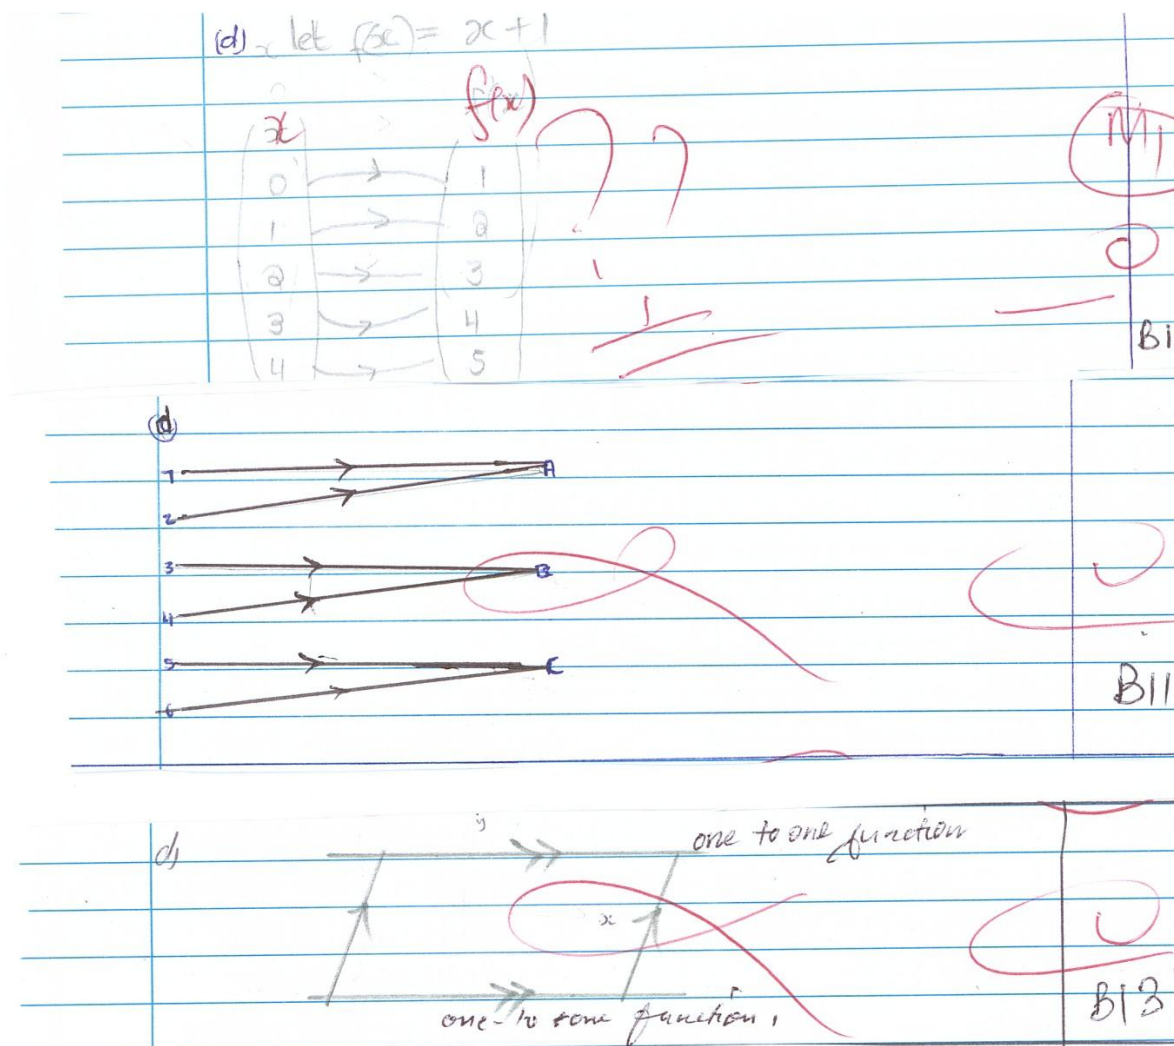 (d) let f(x) = x + 1
x f(x)
0 1
1 2
2 3
3 4
4 5
??
M1
0
B1
d
1 A
2
3 B
4
5 C
6
B11
d) y one to one function
x
one-to one function,
B13